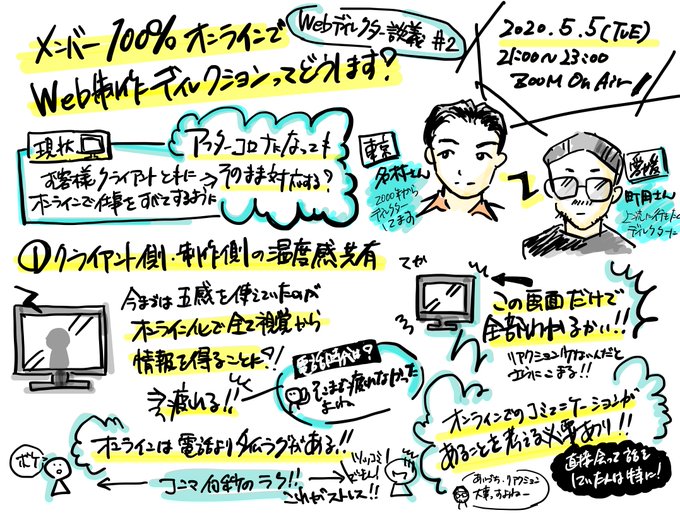 メンバー100%オンラインで
Web制作ディレクションってどうします?
Webディレクター談義 #2
2020.5.5(TUE)
21:00〜23:00
ZOOM On Air!
現状
お客様クライアントともに
オンラインで仕事をすべてするように
アフターコロナになっても
そのまま対応する?
東京
名村さん
2000年から
ディレクター
してます
愛媛
町田さん
ディレクターに
①クライアント側・制作側の温度感共有
今までは五感を使えていたのが
オンライン化で全て視覚から
情報を得ることに?!
今疲れる!!
電話時代は?
そこまで疲れなかった
よね
てか
この画面だけで
全部わかるかい!!
リアクションうけないんだと
立ちにこまる!!
オンラインは電話よりタイムラグがある!!
ボケ
コンマ何秒のラグ!!
ツッコミ
これがストレス!!
オンラインでのコミュニケーションが
あることを考える必要あり!!
直接会って話を
していた人は特に!
あいづち・リアクション
大事っすよねー